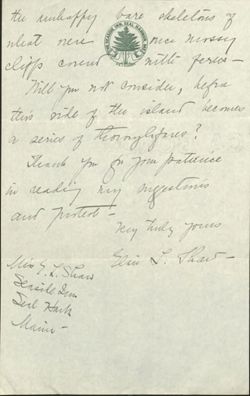 the unhappy bare skeletons of
what were once mossy
cliffs covered with ferns -
Will you not consider, before
this side of the island becomes
a series of thoroughfares?
Thank you for your patience
in reading my suggestions
and protest!
Very truly yours
Elsie L. Shaw -
Miss E. L. Shaw
Seaside Inn
Seal Harbor
Maine -